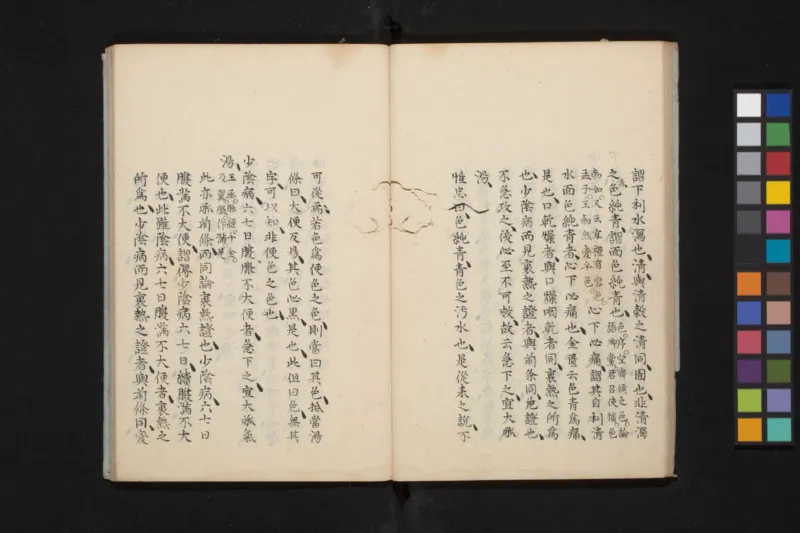 謂下利水瀉也清與清穀之清同圊也非清濁
之色純青謂面色純青也
心下必痛謂其自利清
水而色純青者心下必痛也金匱云色青爲痛
是也口乾燥者與口燥咽乾者同裏熱之所爲
也少陰病而見裏熱之證者與前條同危證也
不急攻之後必至不可救故云急下之宜大承
湯
惟忠曰色純青青色之汚水也是從来之説不
可從焉若色爲便色之色則當曰其色抵當湯
條曰大便反易其色必黒是也此但曰色無其
字可以知非便色之色也
少陰病六七日腹脹不大便者急下之宜大承氣
湯
此亦承前條而同論裏熱證也少陰病六七日
腹滿不大便謂得少陰病六七日腹滿不大
便也此雖陰病六七日腹滿不大便者裏熱之
所爲也少陰病而見裏熱之證者與前條同変